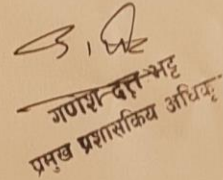 गणेश दत्त भट्ट
प्रमुख प्रशासकिय अधिकृत